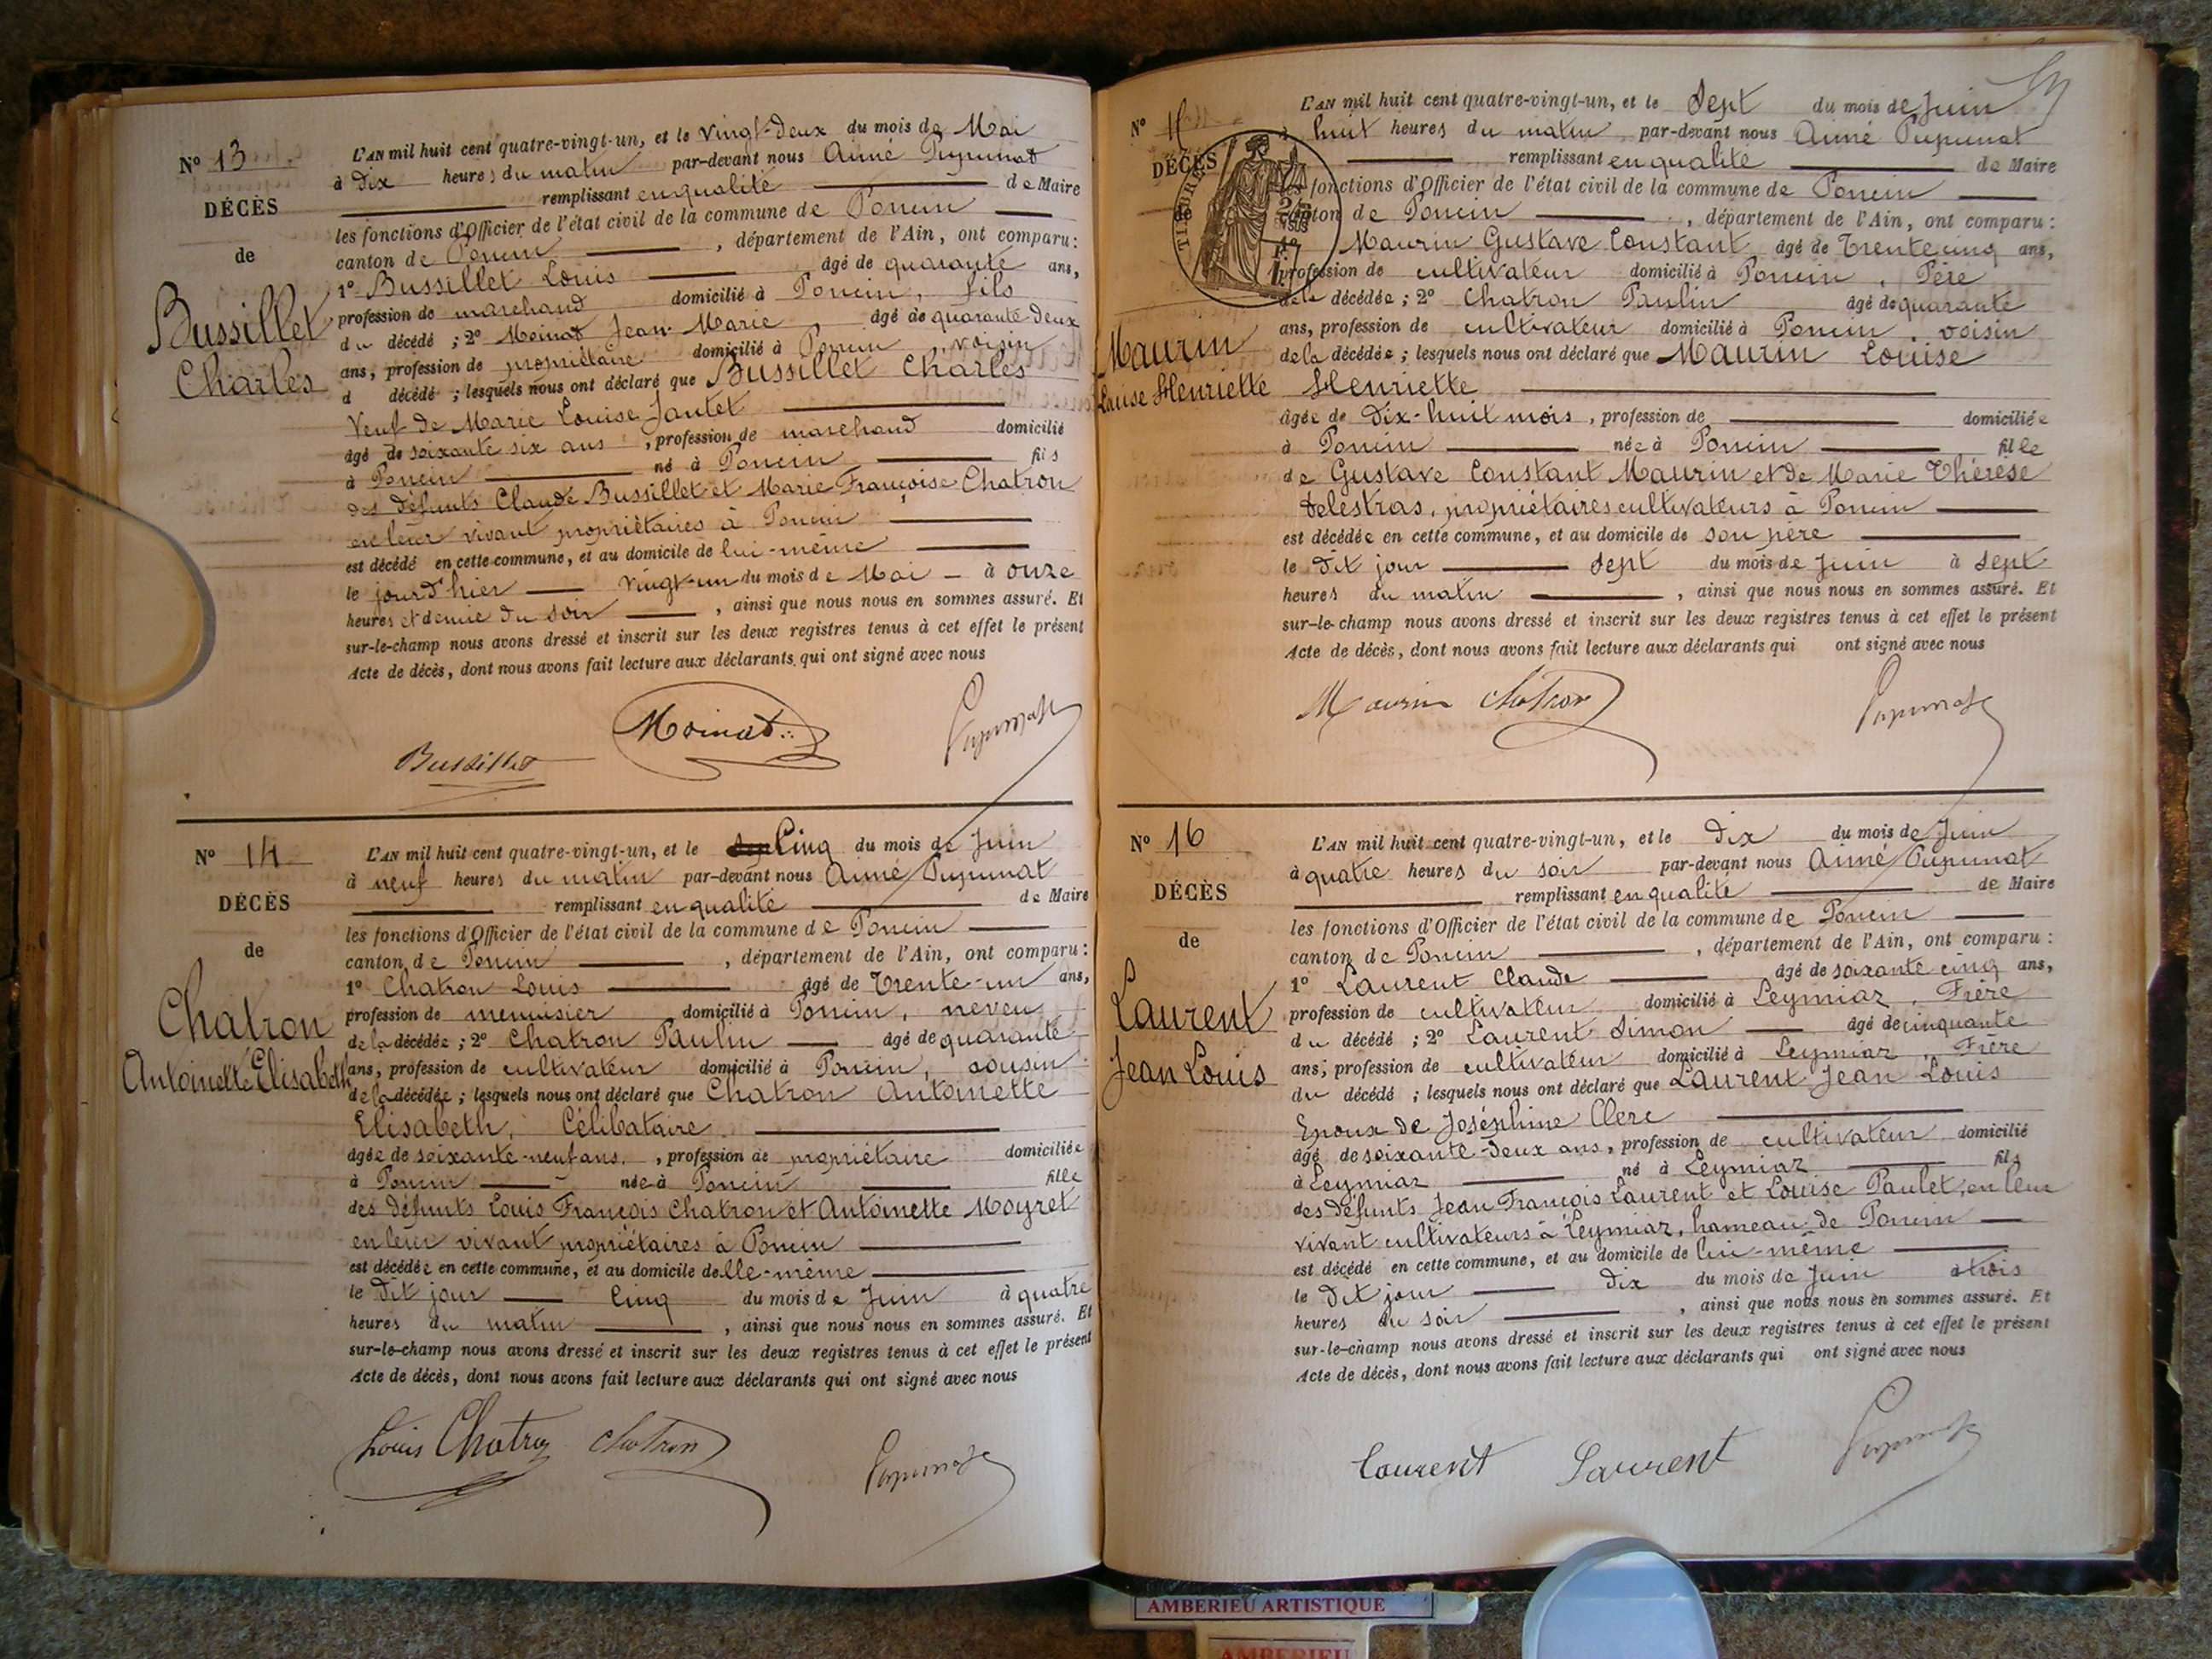 N° 13
DÉCÈS
de
Bussillet
Charles
L'AN mil huit cent quatre-vingt-un, et le vingt-deux du mois de Mai
à dix heures du matin par-devant nous Aimé Pupunat
remplissant en qualité de Maire
les fonctions d'Officier de l'état civil de la commune de Poncin
canton de Poncin, département de l'Ain, ont comparu :
1° Bussillet Louis âgé de quarante ans,
profession de marchand domicilié à Poncin, fils
du décédé ; 2° Moinat Jean-Marie âgé de quarante-deux
ans, profession de propriétaire domicilié à Poncin, voisin
d décédé ; lesquels nous ont déclaré que Bussillet Charles
Veuf de Marie Louise Jantet
âgé de soixante six ans, profession de marchand domicilié
à Poncin né à Poncin fils
des défunts Claude Bussillet et Marie Françoise Chatron
en leur vivant propriétaires à Poncin
est décédé en cette commune, et au domicile de lui-même
le jour d'hier vingt-un du mois de Mai à onze
heures et demie du soir, ainsi que nous nous en sommes assuré. Et
sur-le-champ nous avons dressé et inscrit sur les deux registres tenus à cet effet le présent
Acte de décès, dont nous avons fait lecture aux déclarants qui ont signé avec nous
Bussillet Moinat Pupunat
N° 14
DÉCÈS
de
Chatron
Antoinette Elisabeth
L'AN mil huit cent quatre-vingt-un, et le Cinq du mois de Juin
à neuf heures du matin par-devant nous Aimé Pupunat
remplissant en qualité de Maire
les fonctions d'Officier de l'état civil de la commune de Poncin
canton de Poncin, département de l'Ain, ont comparu :
1° Chatron Louis âgé de Trente-un ans,
profession de menuisier domicilié à Poncin, neveu
de la décédée ; 2° Chatron Paulin âgé de quarante
ans, profession de cultivateur domicilié à Poncin, cousin
de la décédée ; lesquels nous ont déclaré que Chatron Antoinette
Elisabeth, Célibataire
âgée de soixante-neuf ans, profession de propriétaire domiciliée
à Poncin née à Poncin fille
des défunts Louis François Chatron et Antoinette Moyret
en leur vivant propriétaires à Poncin
est décédée en cette commune, et au domicile delle-même
le dit jour Cinq du mois de Juin à quatre
heures du matin, ainsi que nous nous en sommes assuré. Et
sur-le-champ nous avons dressé et inscrit sur les deux registres tenus à cet effet le présent
Acte de décès, dont nous avons fait lecture aux déclarants qui ont signé avec nous
Louis Chatron Chatron Pupunat
N°
DÉCÈS
de
TIMBRE
Maurin
Louise Henriette
L'AN mil huit cent quatre-vingt-un, et le Sept du mois de Juin
à huit heures du matin par-devant nous Aimé Pupunat
remplissant en qualité de Maire
les fonctions d'Officier de l'état civil de la commune de Poncin
canton de Poncin, département de l'Ain, ont comparu :
1° Maurin Gustave Constant âgé de Trente cinq ans,
profession de cultivateur domicilié à Poncin, Père
de la décédée ; 2° Chatron Paulin âgé de quarante
ans, profession de cultivateur domicilié à Poncin, voisin
de la décédée ; lesquels nous ont déclaré que Maurin Louise
Henriette
âgée de Dix-huit mois, profession de domiciliée
à Poncin née à Poncin fille
de Gustave Constant Maurin et de Marie Thérèse
Delestras, propriétaires cultivateurs à Poncin
est décédée en cette commune, et au domicile de son père
le dit jour Sept du mois de Juin à Sept
heures du matin, ainsi que nous nous en sommes assuré. Et
sur-le-champ nous avons dressé et inscrit sur les deux registres tenus à cet effet le présent
Acte de décès, dont nous avons fait lecture aux déclarants qui ont signé avec nous
Maurin Chatron Pupunat
N° 16
DÉCÈS
de
Laurent
Jean Louis
L'AN mil huit cent quatre-vingt-un, et le Dix du mois de Juin
à quatre heures du soir par-devant nous Aimé Pupunat
remplissant en qualité de Maire
les fonctions d'Officier de l'état civil de la commune de Poncin
canton de Poncin, département de l'Ain, ont comparu :
1° Laurent Claude âgé de soixante cinq ans,
profession de cultivateur domicilié à Leymiaz, Frère
du décédé ; 2° Laurent Simon âgé de cinquante
ans, profession de cultivateur domicilié à Leymiaz, Frère
du décédé ; lesquels nous ont déclaré que Laurent Jean Louis
Epoux de Joséphine Clerc
âgé de soixante-deux ans, profession de cultivateur domicilié
à Leymiaz né à Leymiaz fils
des défunts Jean François Laurent et Louise Paulet, en leur
vivant cultivateurs à Leymiaz, hameau de Poncin
est décédé en cette commune, et au domicile de lui-même
le dit jour dix du mois de Juin à trois
heures du soir, ainsi que nous nous en sommes assuré. Et
sur-le-champ nous avons dressé et inscrit sur les deux registres tenus à cet effet le présent
Acte de décès, dont nous avons fait lecture aux déclarants qui ont signé avec nous
Laurent Laurent Pupunat
AMBERIEU ARTISTIQUE
AMBERIEU